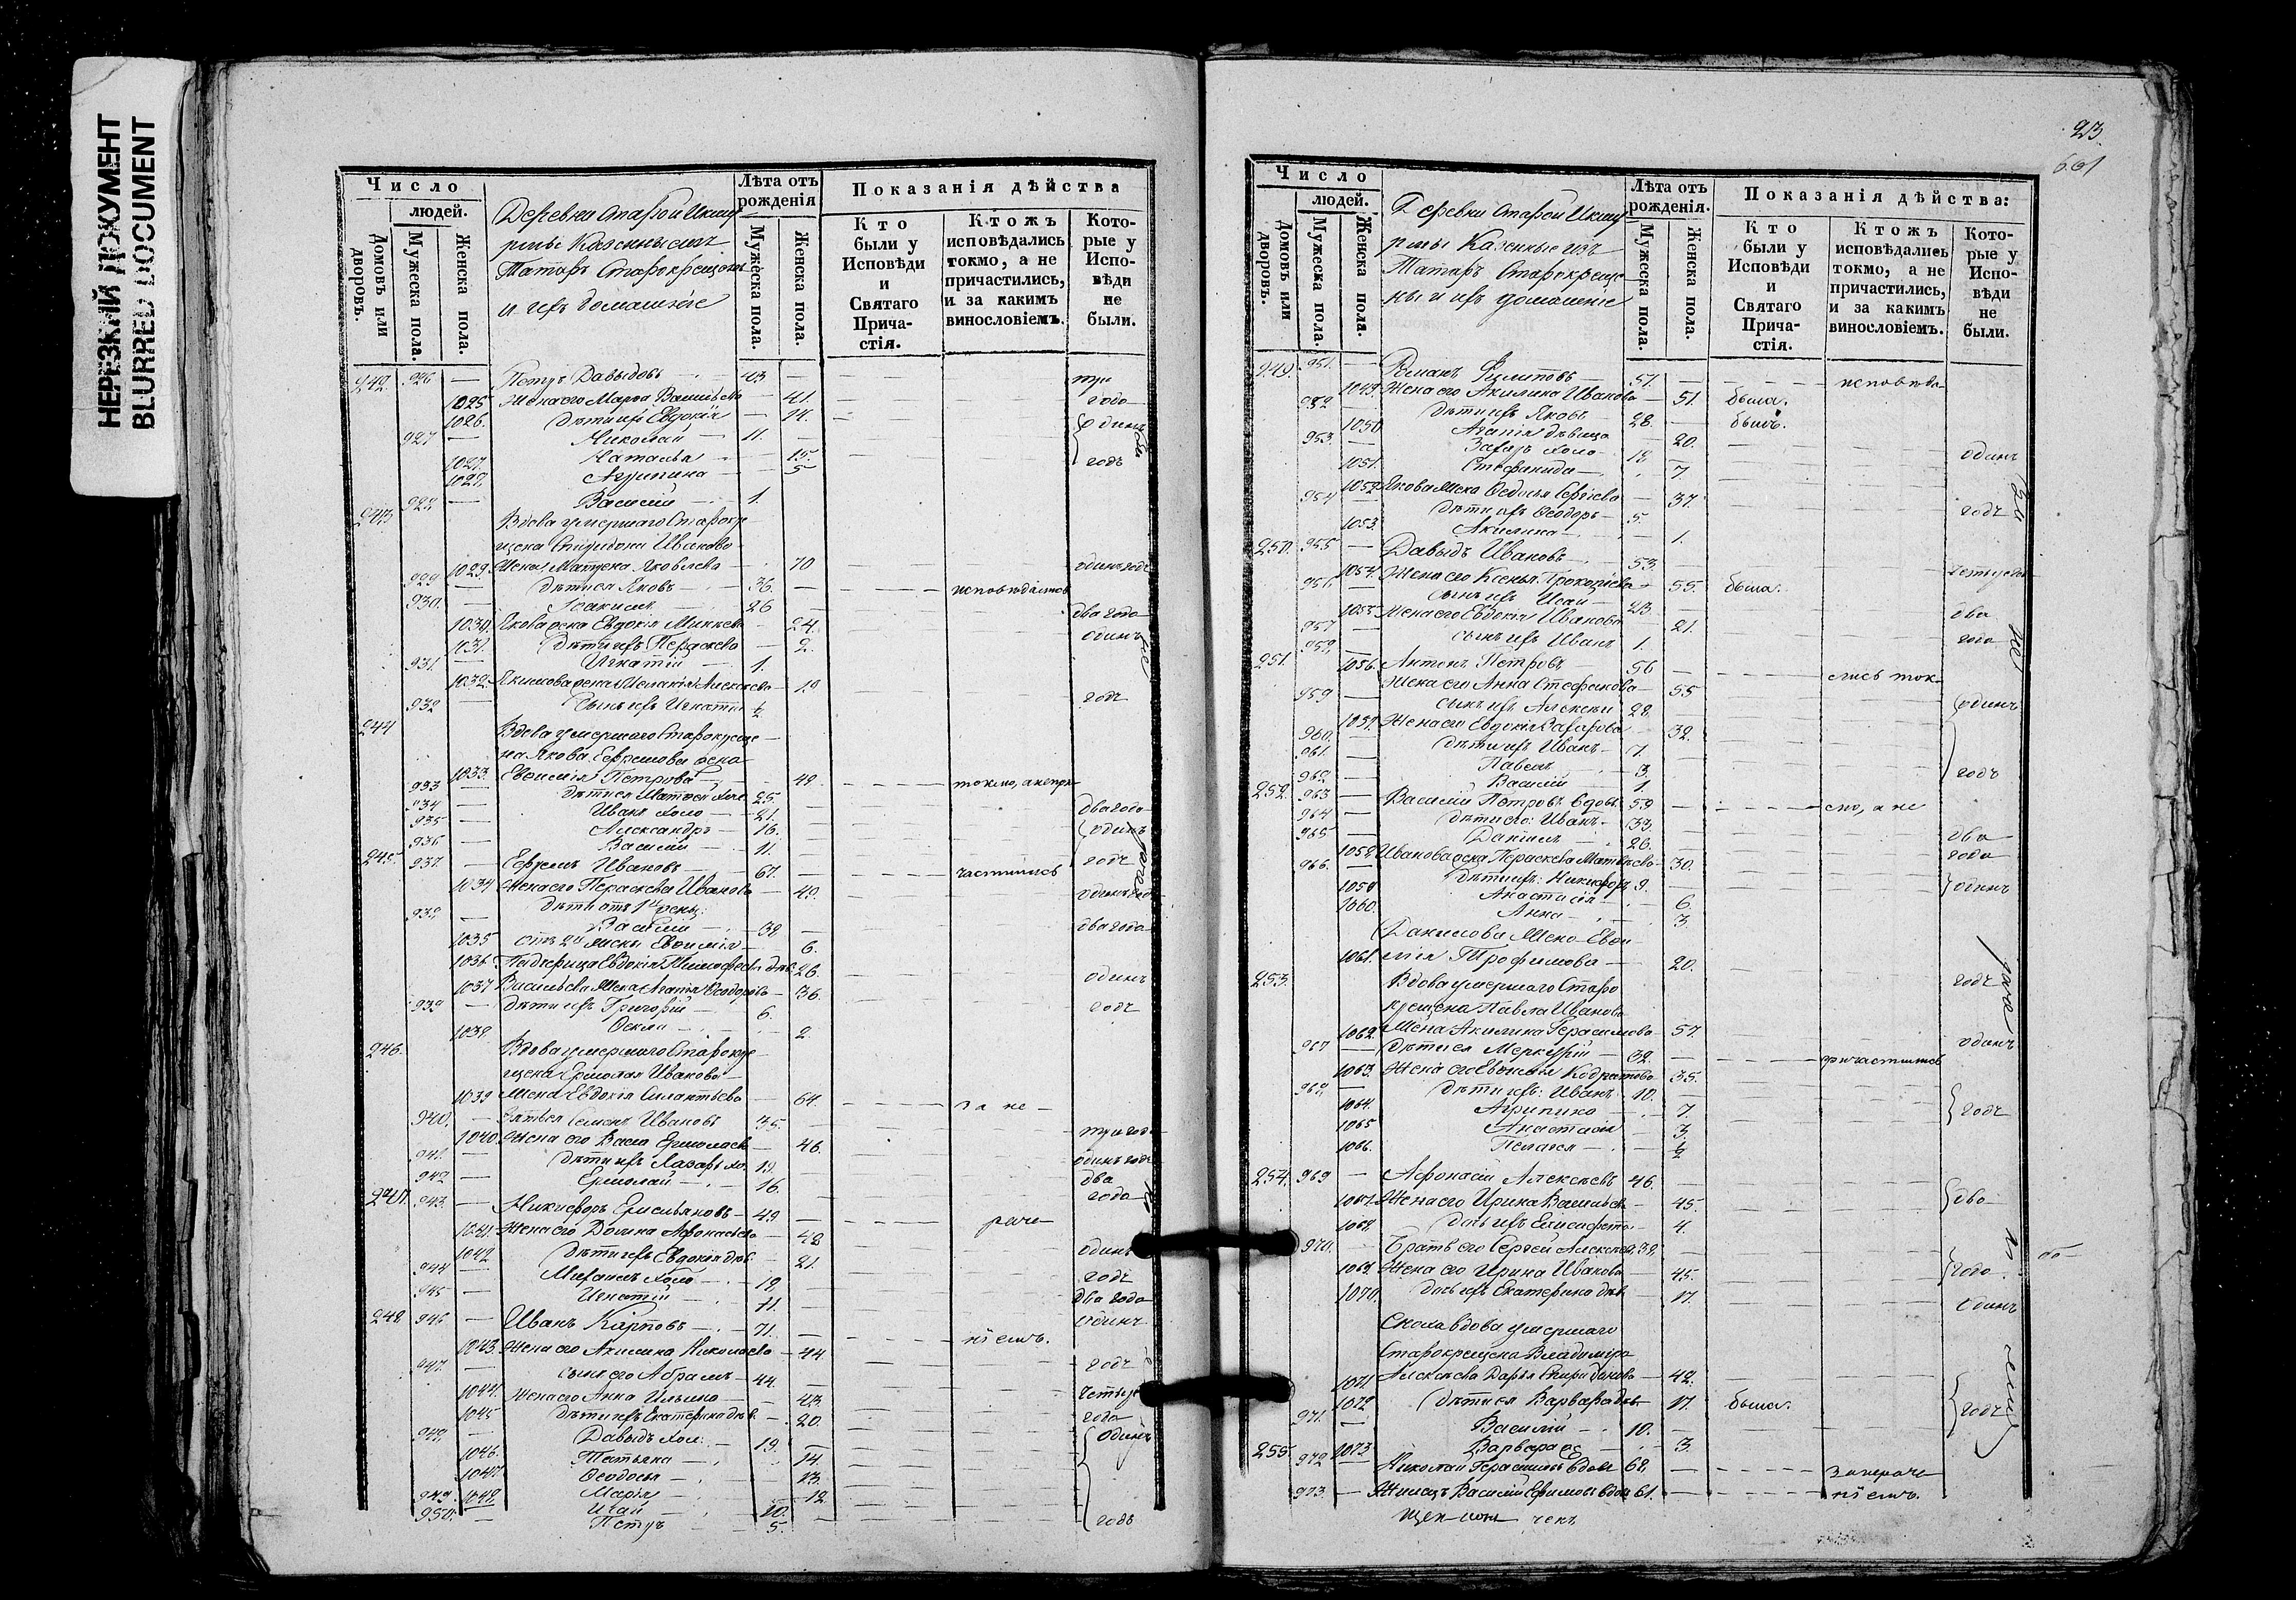 НЕРЕЗКИЙ ДОКУМЕНТ
BLURRED DOCUMENT
Число
людей.
Домовъ или дворовъ.
Мужеска пола.
Женска пола.
Деревни Старой Икшу
рмы Казенные изъ
Татаръ Старокрещены
и ихъ домашніе
Лѣта отъ рожденія
Мужеска пола.
Женска пола.
Показанія дѣйства
Кто были у Исповѣди и Святаго Причастія.
Ктожъ исповѣдались токмо, а не причастились, и за какимъ винословіемъ.
Которые у Исповѣди не были.
242. 926 — Петръ Давыдовъ — 43 — три
1025 Жена его Марѳа Васильева — 41. года
1026. Дѣти ихъ Евдокія — 14. один
927 — Николай — 11.
1027. Наталья — 15. годъ
1028. Агрипина — 5
928. — Василій — 1.
243. Вдова умершаго Старокр
щена Спиридона Иванова
1029. Жена Матрена Яковлева — 70 одинъ годъ
929 — Дѣти ея Яковъ — 36. исповѣдались
930. — Іоакимъ 26 два года
1030. Якова жена Евдокія — 24. одинъ
1031. Дѣти ихъ Параскева — 2.
931. — Игнатій — 1.
1032. Якимова жена Алексѣева — 19
932 — Сынъ ихъ Игнатій ½ годъ
244 Вдова умершаго Старокреще
на Якова Ефремова жена
1033. Евфимія Петрова — 49. токмо, а непри
933 — Дѣти ея Матвей холо. 25.
934 — Иванъ холо — 21. два года
935 — Александръ — 16. один
936 — Василій — 11.
245. 937. — Ефремъ Ивановъ — 67. частились годъ
1034 Жена его Параскева Иванова — 49.
Дѣти отъ 1й жены:
938. — Василій — 38 два года
1035 отъ 2й жены Евфимія — 6.
1036 Падчерица Евдокія Тимофеева дѣв. 26.
1037 Васильева Жена Агапія Ѳеодорова — 36. одинъ
939 — Дѣти ихъ Григорій — 6. годъ
1038. Ѳекла — 2.
246. Вдова умершаго Старокре
щена Ермолая Иванова —
1039 Жена Евдокія Силантьева — 64. за не —
940. — Зять ея Семенъ Ивановъ 35. три года
1040. Жена его Васса Ермолаева — 46.
941. — Дѣти ихъ Лазарь хо. 19. одинъ годъ
942 — Ермолай — 16. два
247. 943. — Никифоръ Емельяновъ — 49 раче— года
1041. Жена его Домна Афонасьева — 48
1042 Дѣти ихъ Евдокія дѣв. — 21. одинъ
944 — Михаилъ холо — 19. годъ
945 — Игнатій — 11 два года
248. 946 — Иванъ Карповъ — 71. ніемъ. один
1043. Жена его Акилина Николаева — 44
947. — сынъ его Абрамъ — 44. годъ
1044. Жена его Анна Ильина — 43. четыре
1045 Дѣти ихъ Екатерина дѣв. — 20. года
948. Давыдъ хол: — 19. один
1046. Татьяна — 14.
1047. Ѳеодосья — 13.
1048. Марія — 12.
949. — Исай — 10.
950. — Петръ 5. годъ
23.
661
Число
людей.
Домовъ или дворовъ.
Мужеска пола.
Женска пола.
Деревни Старой Икшу
рмы Казенные изъ
Татаръ Старокреще
ны и ихъ домашніе
Лѣта отъ рожденія.
Мужеска пола.
Женска пола.
Показанія дѣйства:
Кто были у Исповѣди и Святаго Причастія.
Ктожъ исповѣдались токмо, а не причастились, и за какимъ винословіемъ.
Которые у Исповѣди не были.
249. 951. — Романъ Филиповъ — 57. исповѣда—
1049. Жена его Акилина Иванова — 51. была.
952 — Дѣти ихъ Яковъ 28. былъ.
1050. Агапія дѣвица — 20.
953. Захаръ холо. 18 одинъ
1051. Стефанида — 7.
1052 Якова жена Ѳедосья Сергіева — 37.
954 Дѣти ихъ Ѳеодоръ — 5. годъ
1053. Акилина — 1.
250. 955 — Давыдъ Ивановъ — 53.
1054. Жена его Ксенья Прокопіева — 55. была.
956 — сынъ ихъ Исай — 23.
1055. Жена его Евдокія Иванова 21. два
957 —
958. — сынъ ихъ Иванъ 1. года
251. Антонъ Петровъ — 56 лись ток—
1056. Жена его Анна Стефанова — 55
959 — сынъ ихъ Алексѣй 28. один
1057. Жена его Евдокія Захарова 32.
960. — Дѣти ихъ Иванъ — 7.
961. — Павелъ 3.
962 — Василій — 1. годъ
252. 963 — Василій Петровъ вдов. 59 мо, а не
964 — Дѣти его: Иванъ — 33.
965 — Даніилъ — 26. два
1058 Иванова жена Параскева Матвѣева 30. года
966. — Дѣти ихъ: Никифоръ 9. один
1059 Анастасія — 6.
1060. Анна — 3.
Данилова Жена Евфи
1061. мія Трофимова — 20.
253. Вдова умершаго Старо годъ
крещена Павла Иванова
1062. Жена Акилина Герасимова 57.
967 — Дѣти ея Меркурій — 32. причастились одинъ
1063. Жена его Кодратова 35.
968. — Дѣти ихъ: Иванъ 10.
1064. Агрипина — 7. годъ
1065 Анастасія 3.
1066. Пелагея — ½
254. 969 — Афонасій Алексѣевъ 46.
1067. Жена его Ирина Васильева 45. два
1068. дочь ихъ Елисафета — 4.
970. — Братъ его Сергей Алексѣевъ 38.
1069. Жена его Ирина Иванова — 45. года.
1070. дочь ихъ Екатерина дѣв. 17. один
Сноха вдова умершаго
Старокрещена Владимира
1071. Алексѣева Дарья Спиридонова — 42.
1072 Дѣти ея Варвара дѣв. — 17. была.
971. — Василій — 10. годъ
1073 Варвара — 3.
255. 972 — Николай Герасимовъ вдов. 68. за нераче—
973. — Жилецъ Василій Ефимовъ вдов. 61. ніемъ.